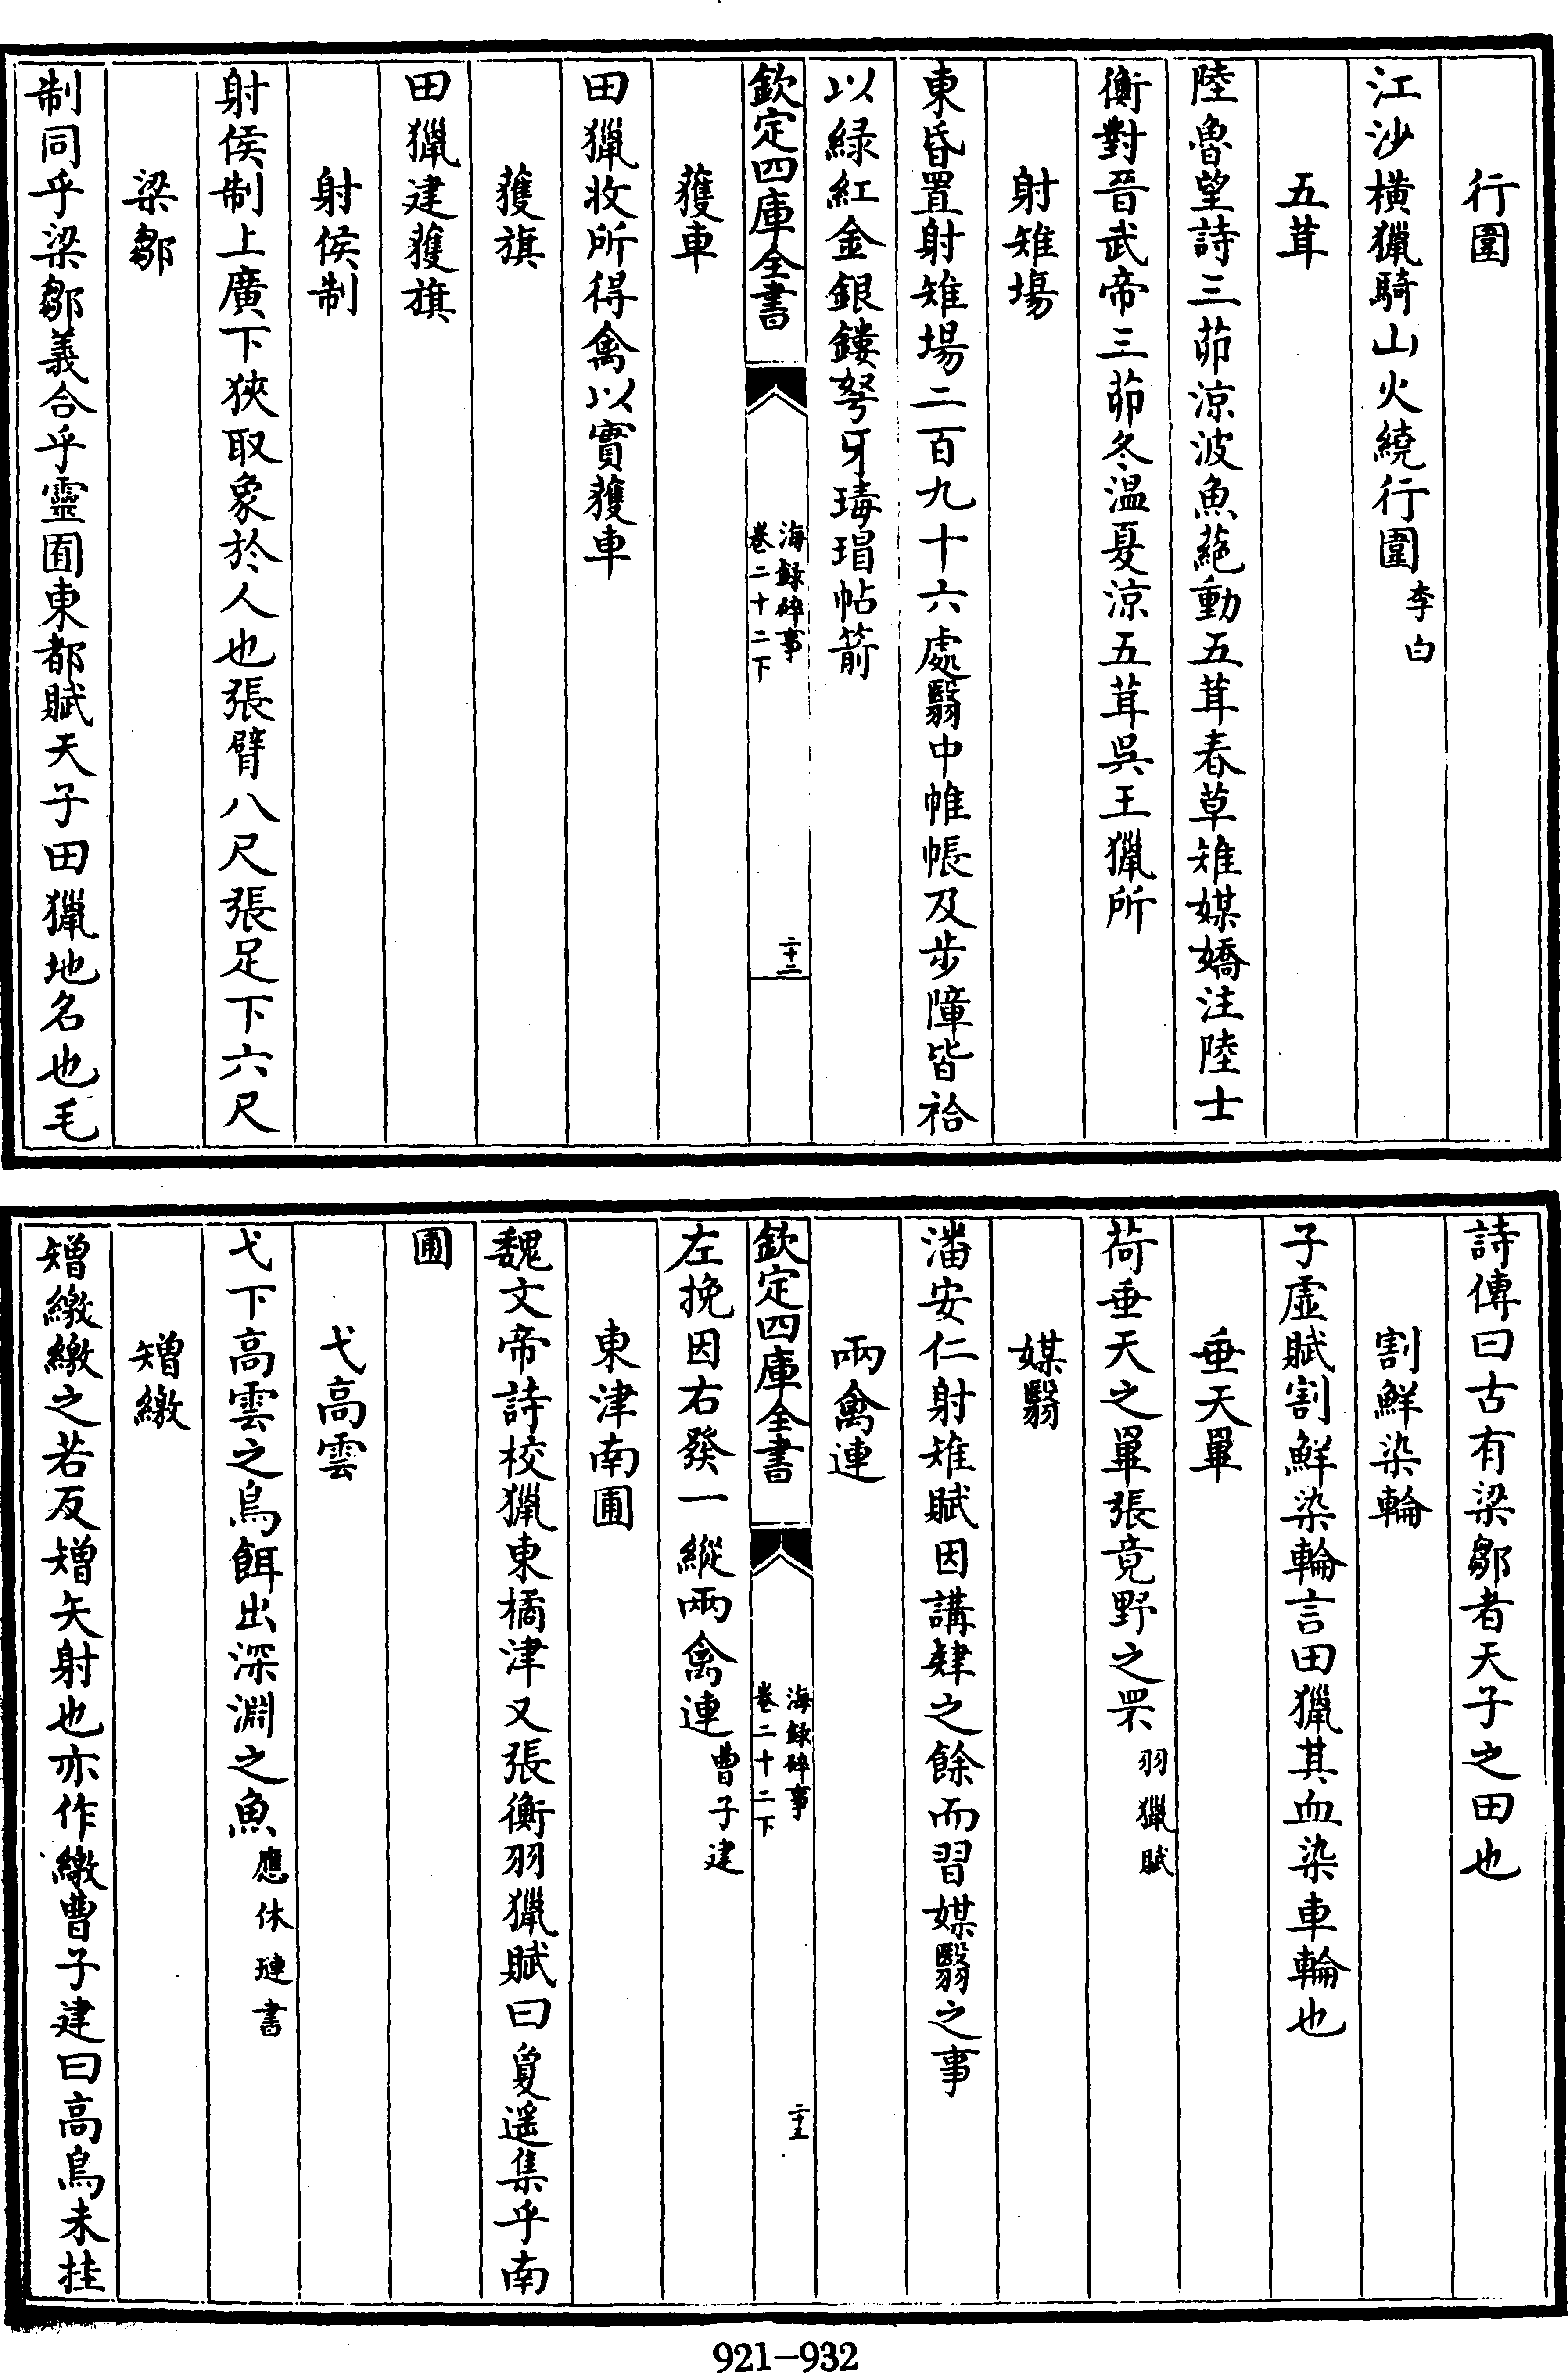 行圍
江沙横獵騎山火繞行圍李白
五茸
陸魯望詩三茆涼波魚蕝動五茸春草雉媒嬌注陸士
衡對晉武帝三茆冬温夏涼五茸吳王獵所
射雉場
東昏置射雉場二百九十六處翳中帷帳及步障皆袷
以緑紅金銀鏤弩牙瑇瑁帖箭
欽定四庫全書
海録碎事
卷二十二下
二十二
獲車
田獵收所得禽以實獲車
獲旗
田獵建獲旗
射侯制
射侯制上廣下狹取象於人也張臂八尺張足下六尺
梁鄒
制同乎梁鄒義合乎靈囿東都賦天子田獵地名也毛
詩傳曰古有梁鄒者天子之田也
割鮮染輪
子虛賦割鮮染輪言田獵其血染車輪也
垂天畢
荷垂天之畢張竟野之罘羽獵賦
媒翳
潘安仁射雉賦因講肄之餘而習媒翳之事
兩禽連
欽定四庫全書
海録碎事
卷二十二下
二十三
左挽因右發一縱兩禽連曹子建
東津南圃
魏文帝詩校獵東橘津又張衡羽獵賦曰夐遥集乎南
圃
弋高雲
弋下高雲之鳥餌出深淵之魚應休璉書
矰繳
矰繳繳之若反矰矢射也亦作繳曹子建曰高鳥未挂
921-932